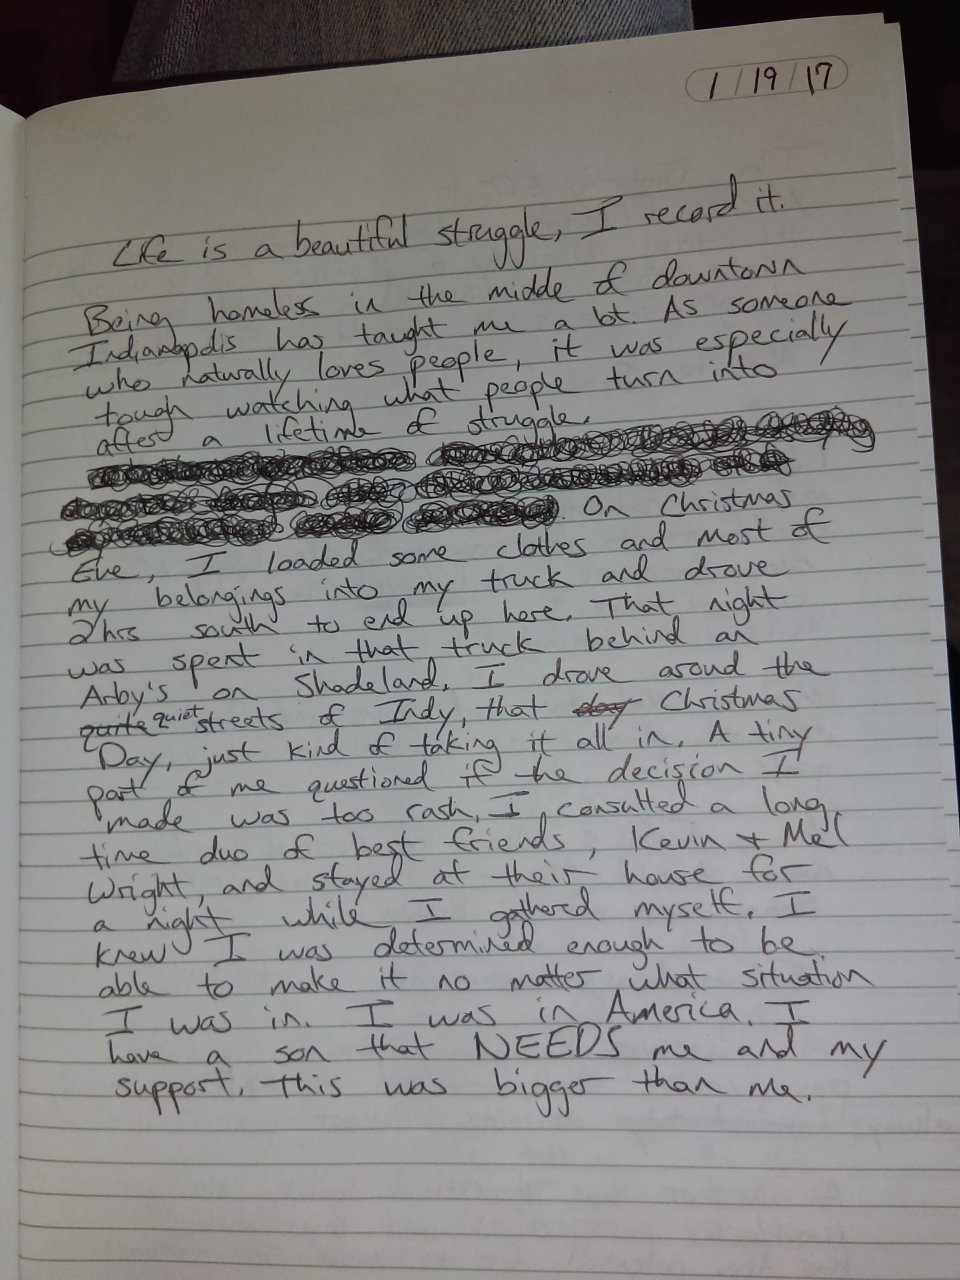 1/19/17
Life is a beautiful struggle, I record it.
Being homeless in the midde of downtown
Indianapolis has taught me a lot. As someone
who naturally loves people, it was especially
tough watching what people turn into
after a lifetime of struggle.
On Christmas
Eve, I loaded some clothes and most of
my belongings into my truck and drove
2hrs south to end up here. That night
was spent in that truck behind an
Arby's on Shadeland. I drove around the
quite quiet streets of Indy, that day Christmas
Day, just kind of taking it all in. A tiny
part of me questioned if the decision I
made was too rash. I consulted a long
time duo of best friends, Kevin + Mel
Wright, and stayed at their house for
a night while I gathered myself. I
knew I was determined enough to be
able to make it no matter what situation
I was in. I was in America. I
have a son that NEEDS me and my
support. This was bigger than me.